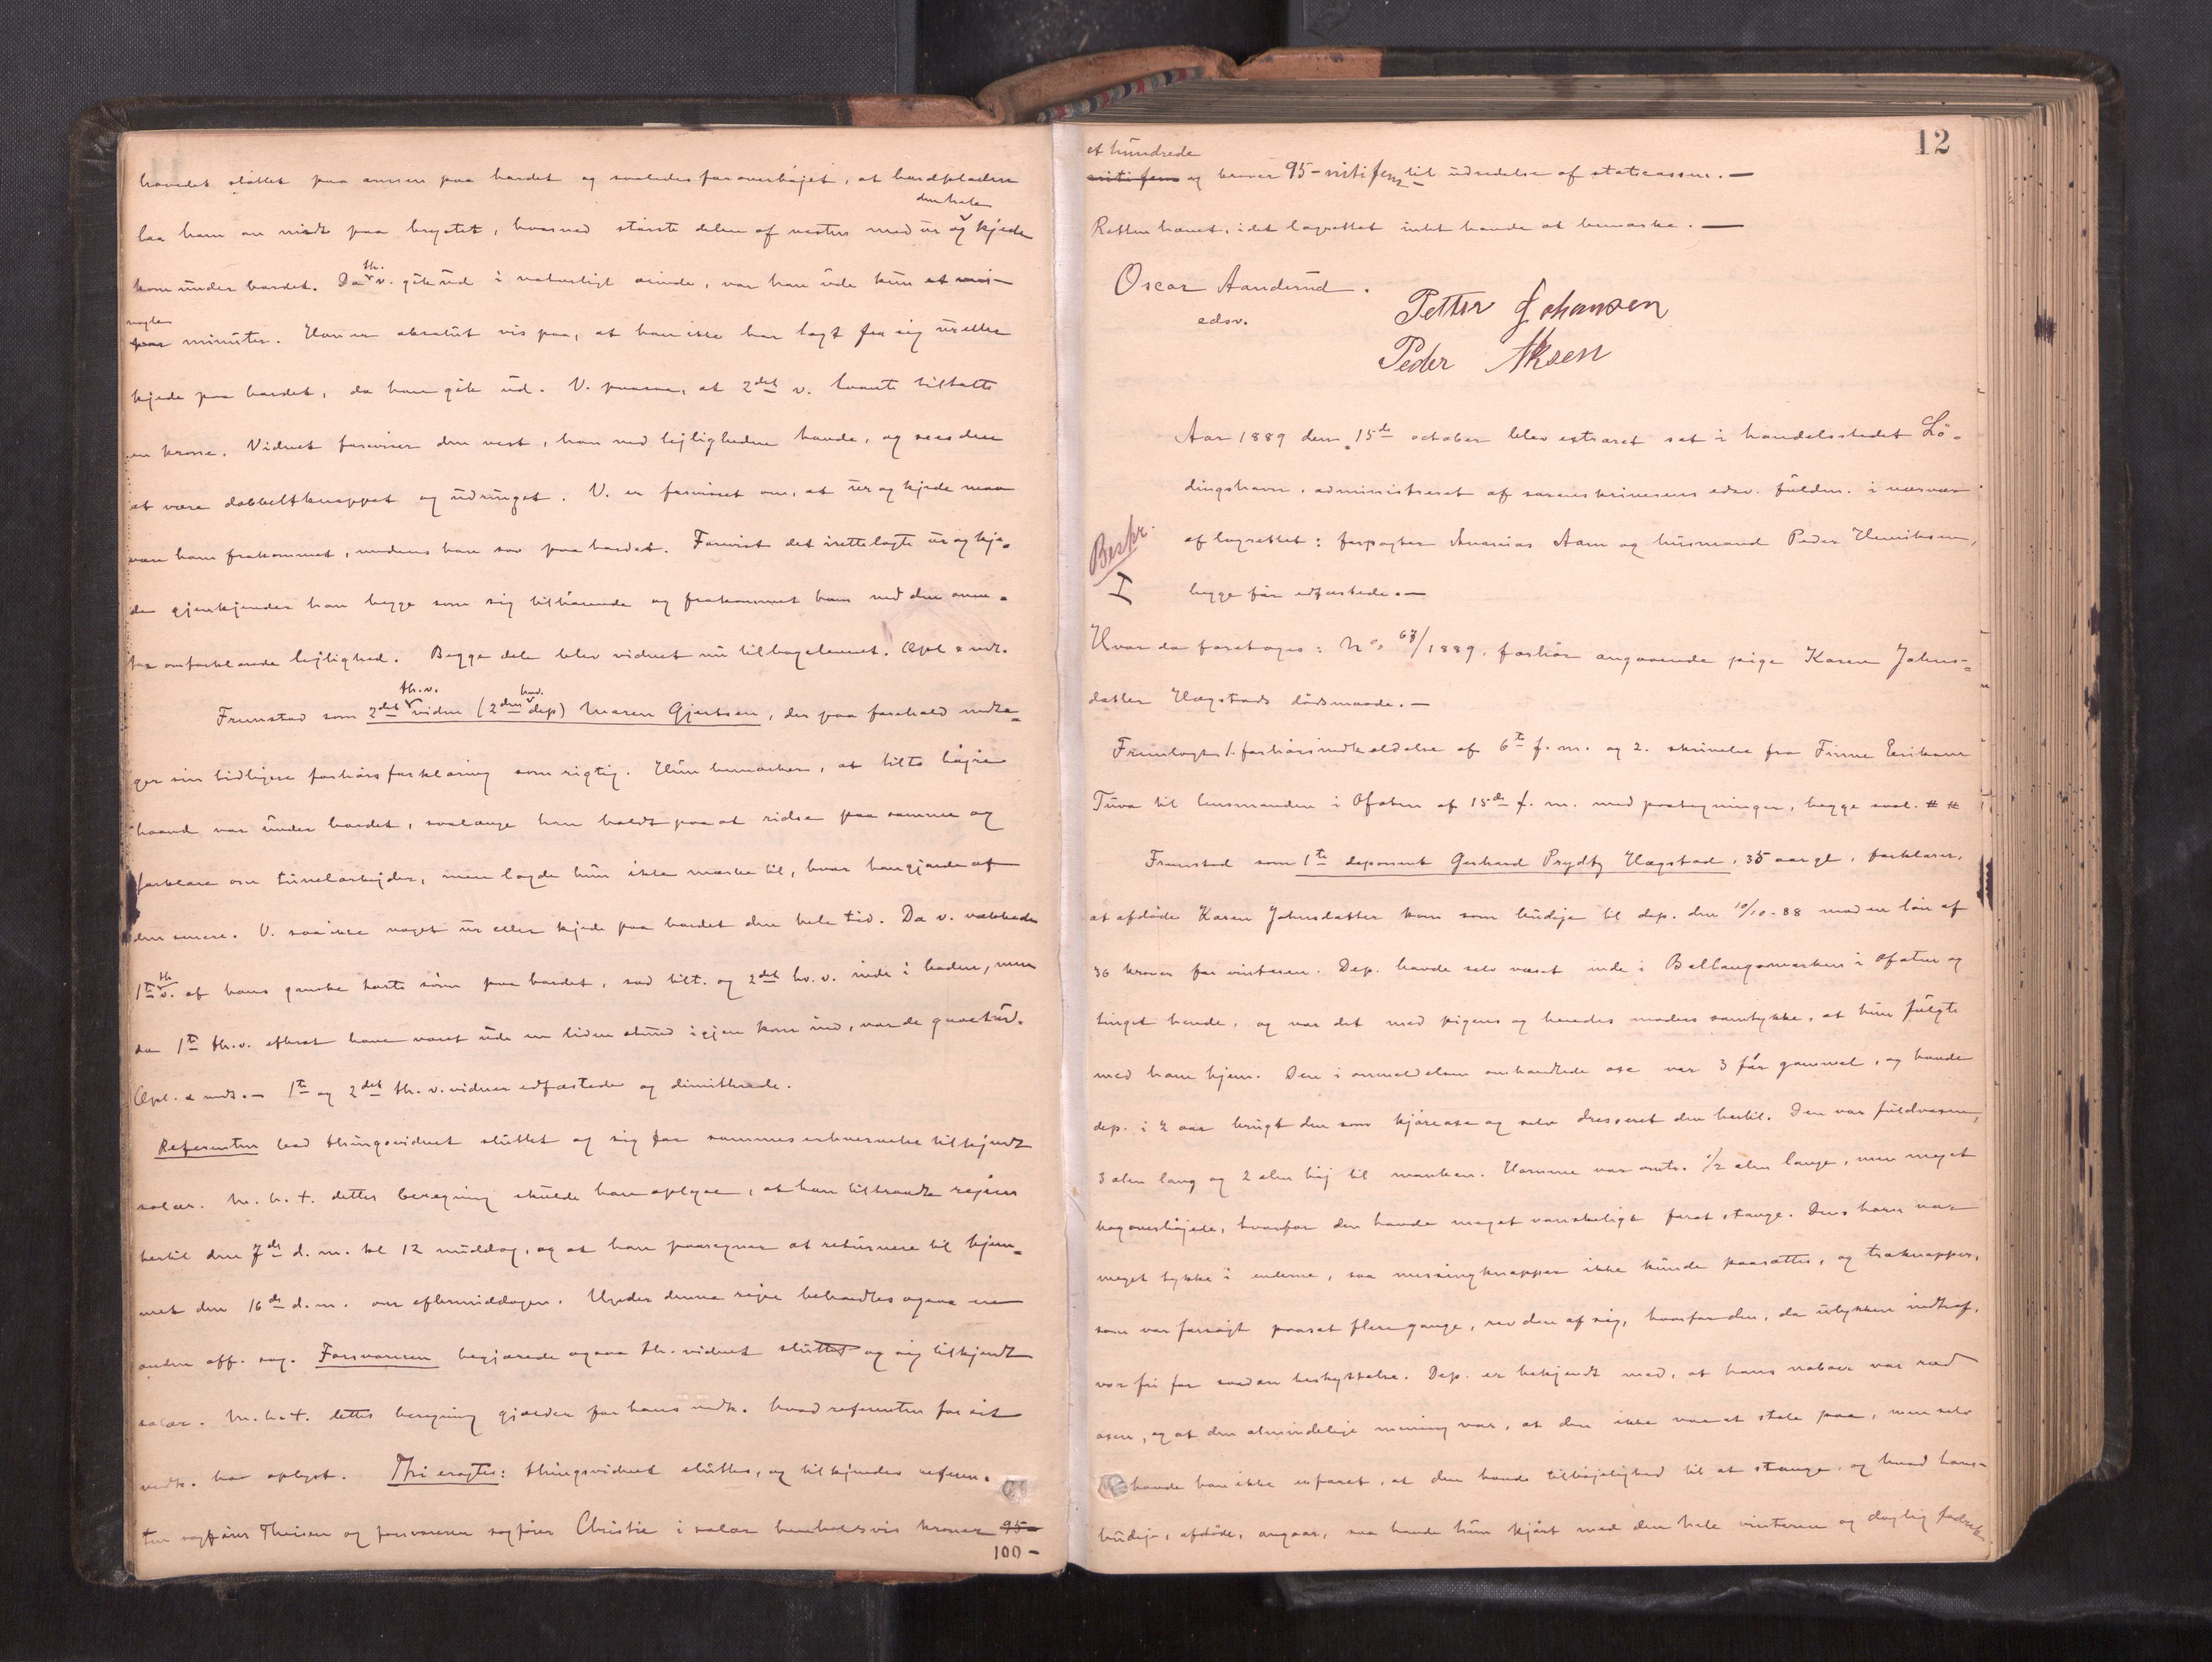 hovedet støttet paa armen paa bordet og saaledes foroverbøjet, at bordpladen
den hele
laa ham om midt paa brystet, hvorved største delen af vesten med ur og kjede
th.
kom under bordet. Da v. gik ud i naturligt ærinde, var han ude kun et
nogle
par minuter. Han er absolut vis paa, at han ikke har lagt fra sig ur eller
kjede paa bordet, da han gik ud. V. paasaa, at 2det v. laante tiltalte
en krone. Vidnet foreviser den vest, han ved lejligheden havde, og sees den
at være dobbeltknappet og udringet. V. er forvisset om, at ur og kjede maa
være ham frakommet, medens han sov paa bordet. Forevist det irettelagte ur og kje-
de gjenkjender han begge som sig tilhørende og frakommet ham ved den oven-
for omforklarede lejlighed. Begge dele blev vidnet nu tilbageleveret. Opl. & vedt.
th.v. hv.
Fremstod som 2det vidne (2den dep) Maren Gjertsen, der paa forehold vedta-
ger sin tidligere forhørsforklaring som rigtig. Hun bemærker, at tilts højre
haand var under bordet, saalænge han holdt paa at ridse paa samme og
forklare om tunelarbejder, men lagde hun ikke mærke til, hvor han gjorde af
den senere. V. saa ikke noget ur eller kjede paa bordet den hele tid. Da v. vækkede
th.
1te v. af hans ganske korte søvn paa bordet, sad tilt. og 2det hv. v. inde i boden, men
da 1te th.v. efterat have været ude en liden stund igjen kom ind, var de gaaet ud.
Opl. & vedt. – 1te og 2det th. v. vidner edfæstede og dimitterede.
Referenten bad thingsvidnet sluttet og sig for sammes erhvervelse tilkjendt
salær. M. h. t. dettes beregning skulde han oplyse, at han tiltraadte rejsen
hertil den 7de d. m. kl 12 middag, og at han paaregner at returnere til hjem-
met den 16de d. m. om eftermiddagen. Under denne rejse behandles ogsaa en
anden off. sag. Forsvareren begjærede ogsaa th. vidnet sluttet og sig tilkjendt
salær. M. h. t. dettes beregning gjælder for hans vedk. hvad referenten for sit
vedk. har oplyst. Thi eragtes: thingsvidnet sluttes, og tilkjendes referen-
ten sagfører Theisen og forsvareren sagfører Christie i salær henholdsvis kroner 95-
100 –
12
et hundrede
nitifem og kroner 95 – nitifem – til udredelse af statscassen. –
Retten hævet, idet lagrettet intet havde at bemærke. –
Oscar Aanderud.
edsv.
Petter Johansen
Peder Aksen
Aar 1889 den 15de october blev extraret sat i handelsstedet Lø-
dingshavn, administreret af sorenskriverens edsv. fuldm. i nærvær
Beskr.
af lagrettet: forpagter Ananias Aam og husmand Peder Henriksen,
I
begge før edfæstede. –
Hvor da foretoges: No 67/1889. forhør angaaende pige Karen Johns-
datter Hægstads dødsmaade. –
Fremlagtes 1. forhørsindkaldelse af 6te f. m. og 2. skrivelse fra Finne Eriksen
Tuva til lensmanden i Ofoten af 15de f. m. med paategninger, begge saal. # #
Fremstod som 1te deponent Gerhard Prydtz Hægstad, 35 aar gl, forklarer,
at afdøde Karen Johnsdatter kom som budeje til dep. den 10/10-88 mod en løn af
36 kroner for vinteren. Dep. havde selv været inde i Ballangsmarken i Ofoten og
tinget hende, og var det med pigens og hendes moders samtykke, at hun fulgte
med ham hjem. Den i anmeldelsen omhandlede oxe var 3 før gammel, og havde
dep. i 2 aar brugt den som kjøreoxe og selv dresseret den hertil. Den var fuldvoxen,
3 alen lang og 2 alen høj til manken. Hornene var omtr. 1/2 alen lange, men meget
bagoverbøjede, hvorfor den havde meget vanskeligt for at stange. Dens horn var
meget tykke i enderne, saa messingknapper ikke kunde paasættes, og træknapper,
som var forsøgt paasat flere gange, rev den af sig, hvorfor den, da ulykken indtraf,
var fri for saadan beskyttelse. Dep. er bekjendt med, at hans naboer var ræd
oxen, og at den almindelige mening var, at den ikke var at stole paa, men selv
havde han ikke erfaret, at den havde tilbøjelighed til at stange, og hvad hans
budeje, afdøde, angaar, saa havde hun kjørt med den hele vinteren og daglig fodret